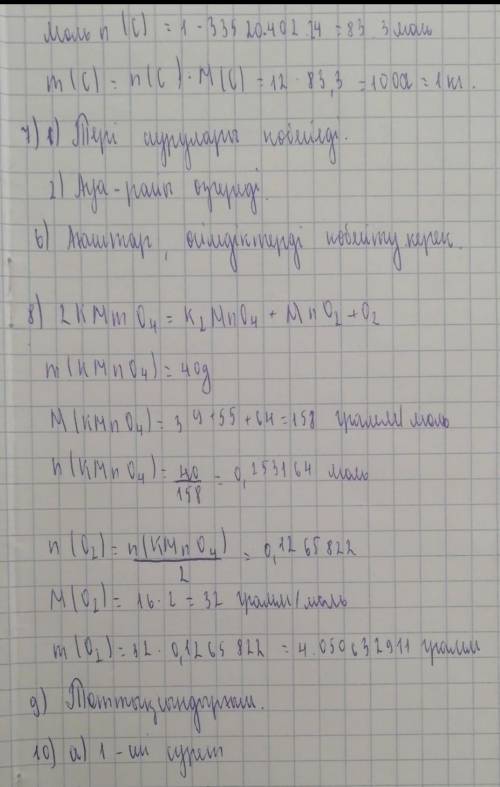 Моль n (C) = 1 - 33520.402.24 = 83 3 моль
m (C) = n(C) · M(C) = 12 · 83,3 = 1000г = 1 кг.
7) 1) Тері аурулары көбейеді.
2) Ауа-райы өзгереді
b) Ағаштар, өсімдіктерді көбейту керек.
8) 2KMnO4 = K2MnO4 + MnO2 + O2
m (KMnO4) = 40g
M (KMnO4) = 39+55+64=158 грамм/моль
n (KMnO4) = 40/158 = 0,253164 моль
n (O2) = n(KMnO4)/2 = 0,1265822
M(O2) = 16·2 = 32 грамм/моль
m (O2) = 32 · 0,1265822 = 4.050632911 грамм
9) Тоттықсындырғыш.
10) a) 1-ші сурет